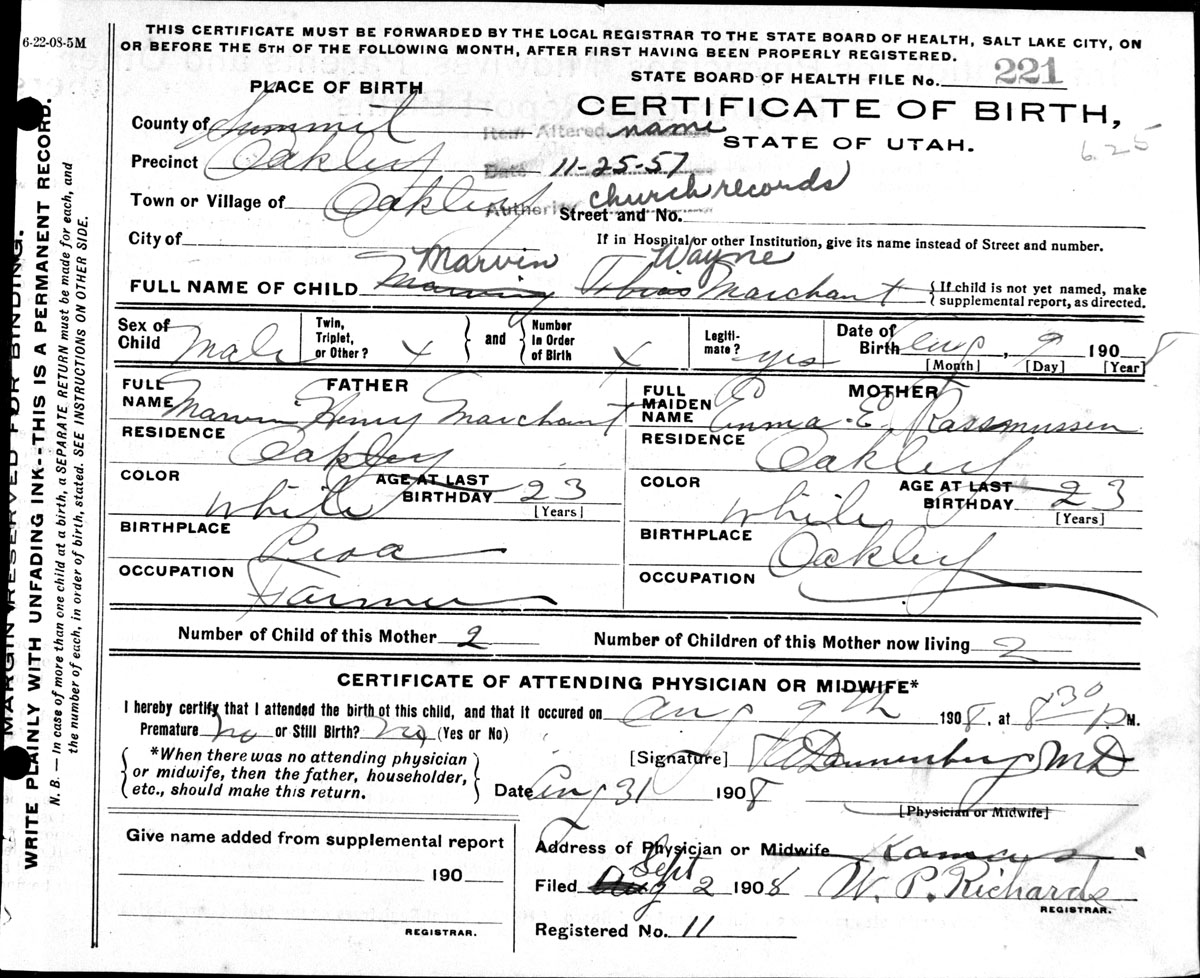 6-22-08-5M
THIS CERTIFICATE MUST BE FORWARDED BY THE LOCAL REGISTRAR TO THE STATE BOARD OF HEALTH, SALT LAKE CITY, ON
OR BEFORE THE 5TH OF THE FOLLOWING MONTH, AFTER FIRST HAVING BEEN PROPERLY REGISTERED.
STATE BOARD OF HEALTH FILE No. 221
PLACE OF BIRTH
CERTIFICATE OF BIRTH,
STATE OF UTAH.
6.25
County of Summit
Item Altered name
Precinct Oakley
Date 11-25-57
Town or Village of Oakley
Authority church records
Street and No.
City of
If in Hospital or other Institution, give its name instead of Street and number.
Marvin Wayne
FULL NAME OF CHILD Tobias Marchant
{If child is not yet named, make
supplemental report, as directed.
Sex of Child Male
Twin, Triplet, or Other? x
and
Number in Order of Birth x
Legiti-mate? yes
Date of Birth Aug, 9 1908
[Month] [Day] [Year]
FATHER
FULL NAME Marvin Henry Marchant
RESIDENCE Oakley
COLOR White
AGE AT LAST BIRTHDAY 23
[Years]
BIRTHPLACE Peoa
OCCUPATION Farmer
MOTHER
FULL MAIDEN NAME Emma E. Rassmussen
RESIDENCE Oakley
COLOR White
AGE AT LAST BIRTHDAY 23
[Years]
BIRTHPLACE Oakley
OCCUPATION
Number of Child of this Mother 2
Number of Children of this Mother now living 2
CERTIFICATE OF ATTENDING PHYSICIAN OR MIDWIFE*
I hereby certify that I attended the birth of this child, and that it occured on Aug 9th 1908, at 8 30 P M.
Premature No or Still Birth? No (Yes or No)
*When there was no attending physician
or midwife, then the father, householder,
etc., should make this return.
[Signature] Dannenberg MD
Date Aug 31 1908
[Physician or Midwife]
Give name added from supplemental report
190
REGISTRAR.
Address of Physician or Midwife Kamas
Filed Aug Sept 2 1908 W. P. Richards
REGISTRAR.
Registered No. 11
MARGIN RESERVED FOR BINDING.
WRITE PLAINLY WITH UNFADING INK--THIS IS A PERMANENT RECORD.
N. B. — In case of more than one child at a birth, a SEPARATE RETURN must be made for each, and
the number of each, in order of birth, stated. SEE INSTRUCTIONS ON OTHER SIDE.